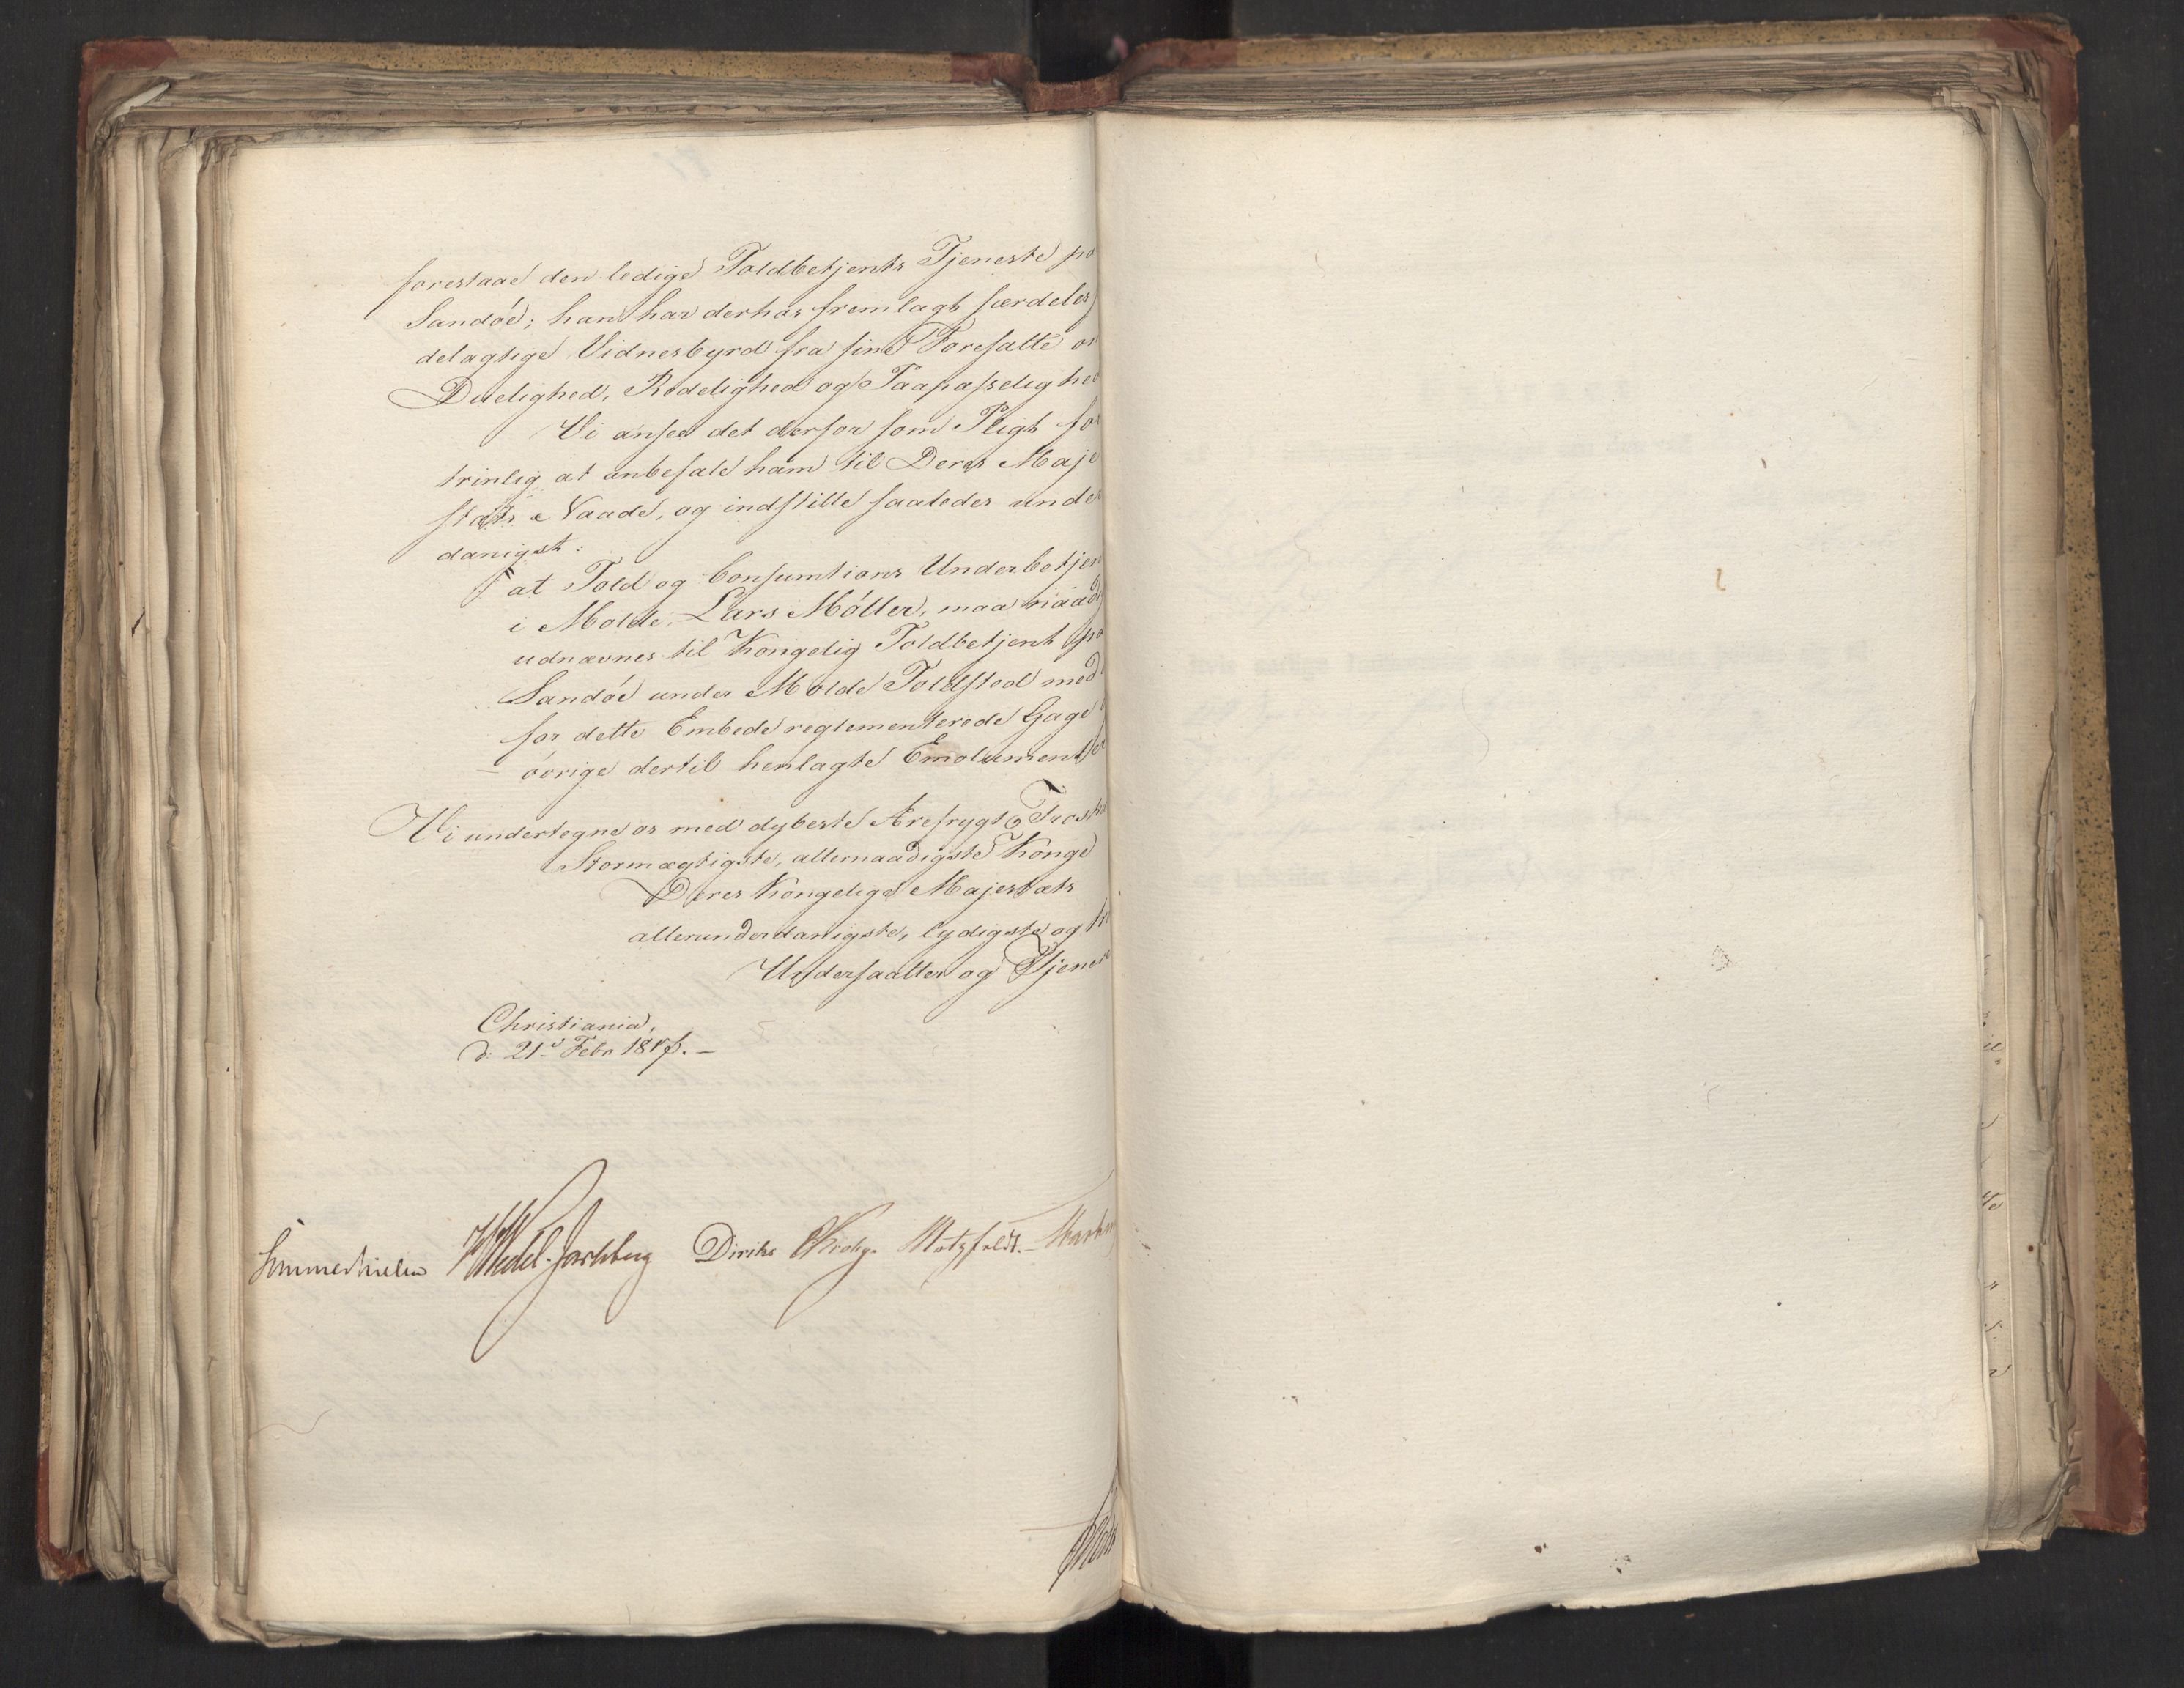 forestaae den ledige Toldbetjents Tjeneste pa
Sandóe; han har derhos fremlagt særdeles
delagtige Vidnesbyrd fra sine Foresatte o
Duelighed, Redelighed og Paapasselighe
Vi ansee det derfor som Pligt for
trinlig at anbefale ham til Deres Maje
stæts Naade, og indstille saaledes unde
danigst:
at Told og Consumtions Underbetjen
i Molde, Lars Móller, maa naad
udnævnes til Kongelig Toldbetjent pa
Sandóe under Molde Toldsted med
for dette Embede reglementerede Gage
óvrige dertil henlagte Emolumente
Vi undertegne os med dybeste Ærefrygt Troska
Stormægtigste, allernaadigste Konge
Deres Kongelige Majestæts
allerunderdanigste, lydigste og tr
Undersaatter og Tjener
Christiania,
d: 21.d Febr 1817.
Sommerhielm Wedel-Jarlsberg Diriks CKrohg. Motzfeldt.